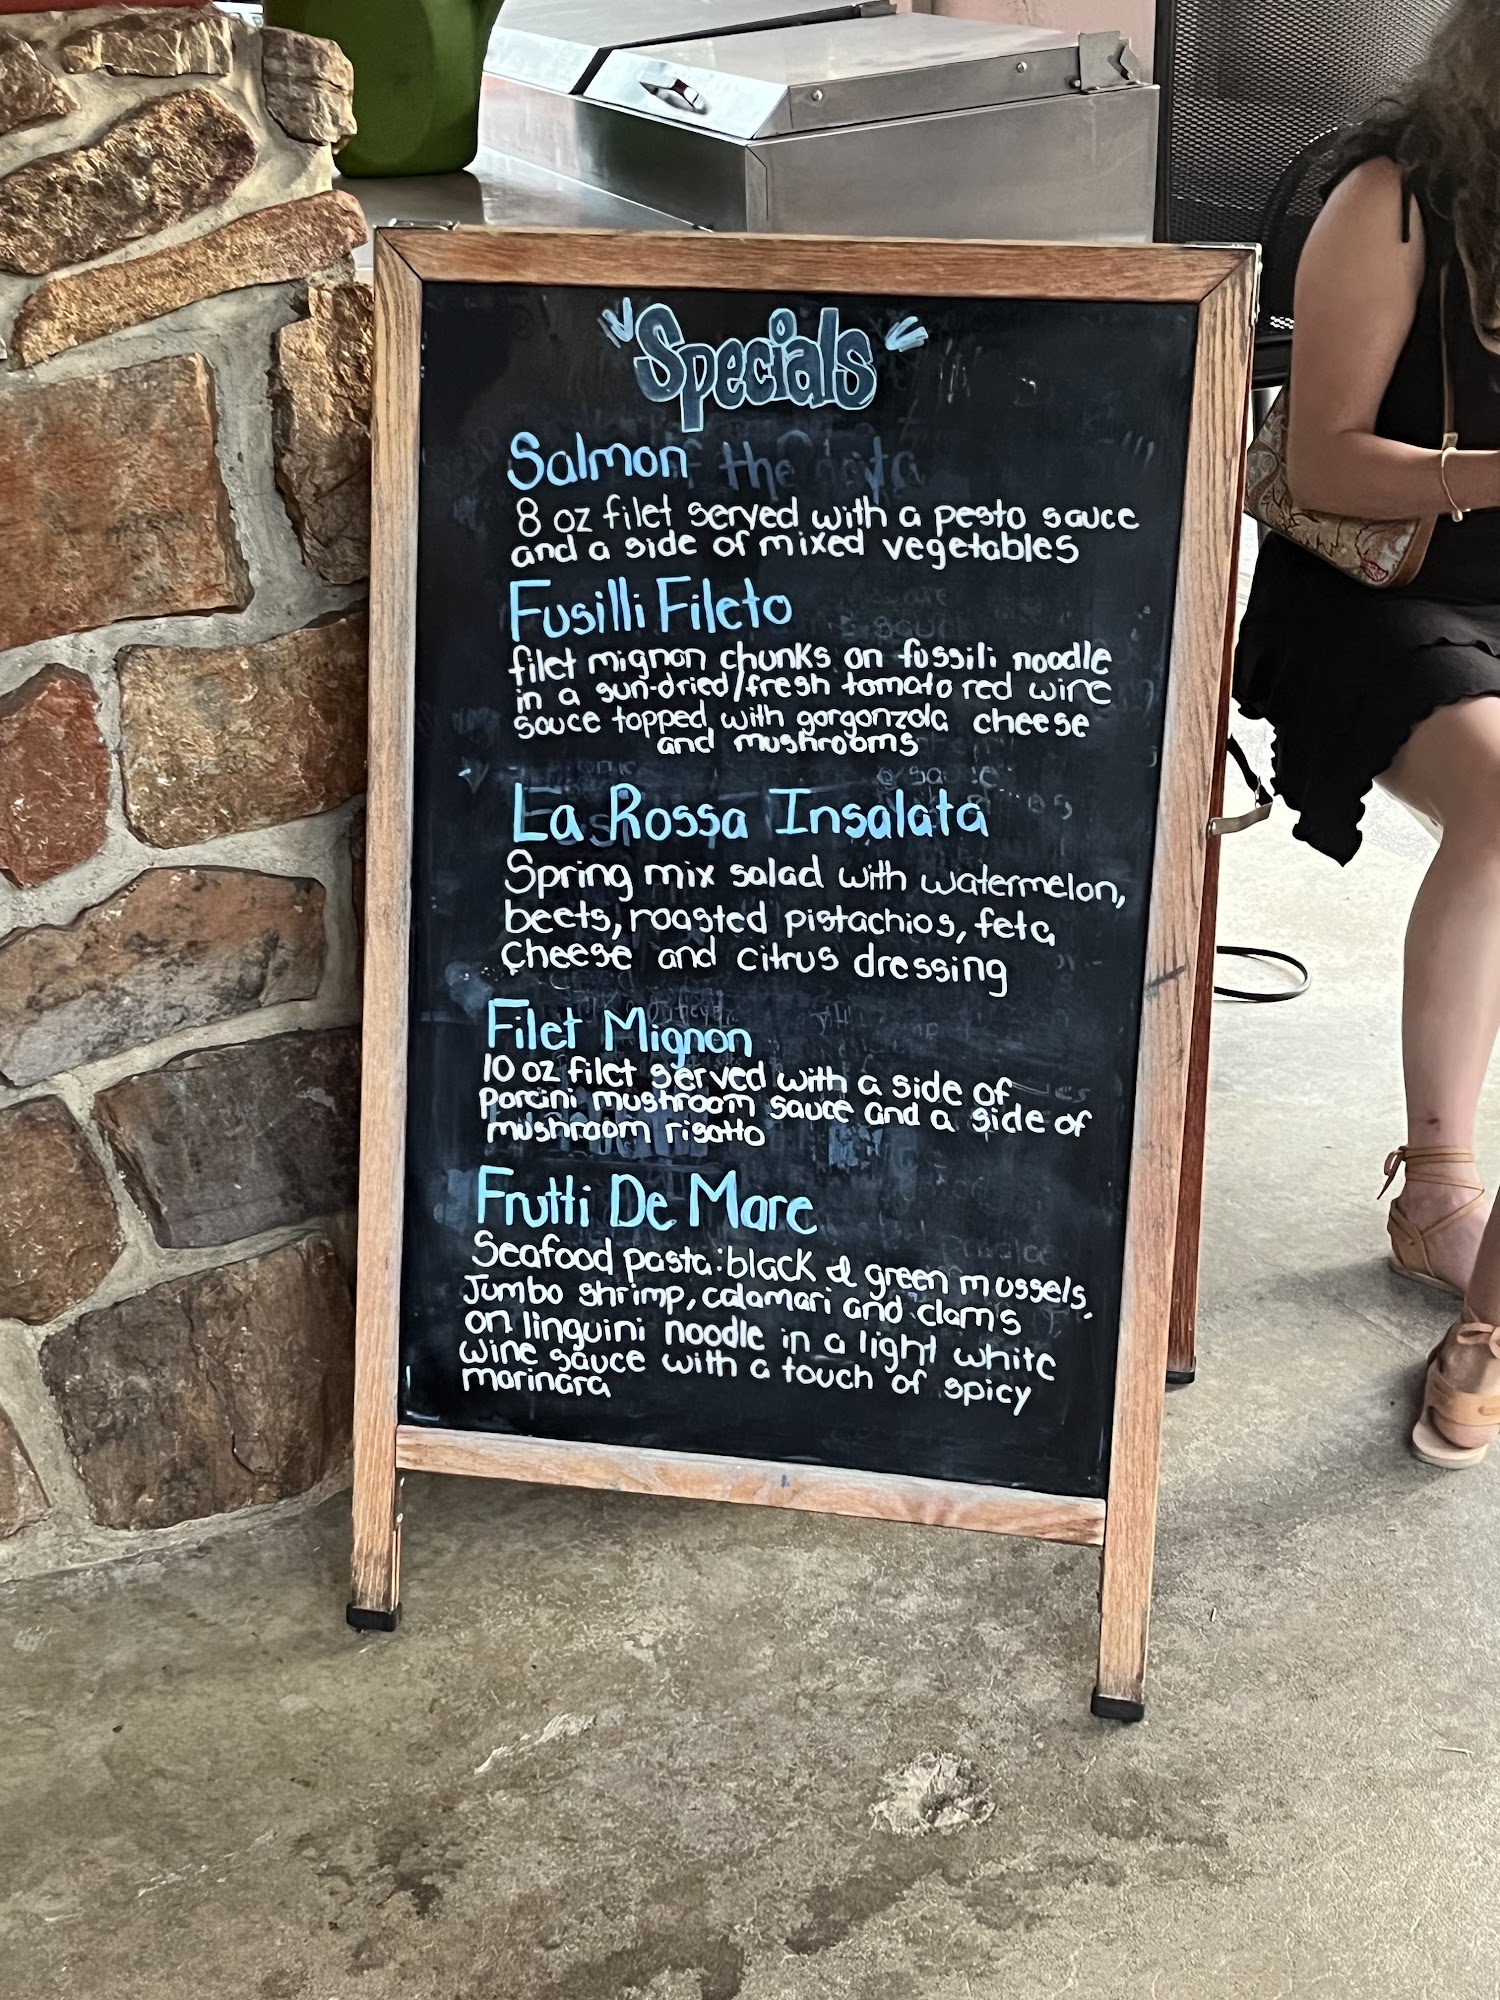 Specials
Salmon
8 oz filet served with a pesto sauce
and a side of mixed vegetables
Fusilli Fileto
filet mignon chunks on fussili noodle
in a sun-dried/fresh tomato red wine
sauce topped with gorgonzola cheese
and mushrooms
La Rossa Insalata
Spring mix salad with watermelon,
beets, roasted pistachios, feta
cheese and citrus dressing
Filet Mignon
10 oz filet served with a side of
porcini mushroom sauce and a side of
mushroom risotto
Frutti De Mare
Seafood pasta: black & green mussels,
Jumbo shrimp, calamari and clams
on linguini noodle in a light white
wine sauce with a touch of spicy
marinara